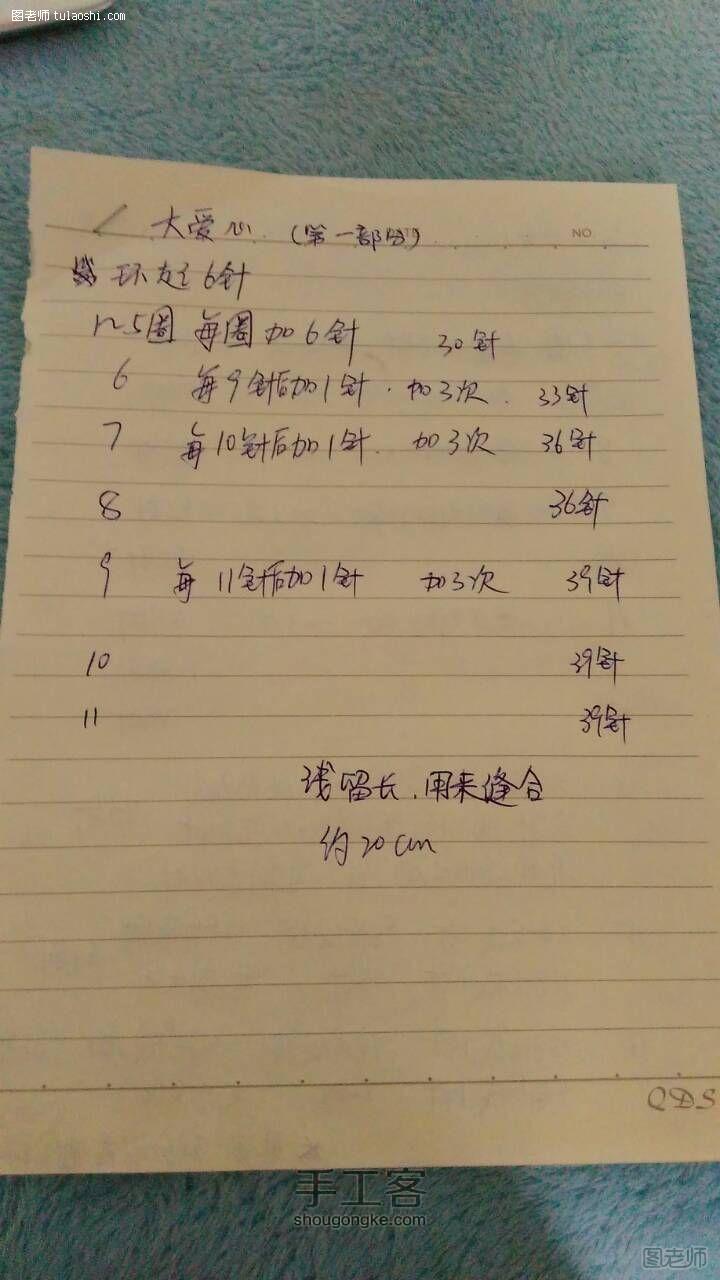 图老师 tulaoshi.com
大爱心 (第一部分) NO
环起6针
1~5圈 每圈加6针 30针
6 每9针后加1针. 加3次. 33针
7 每10针后加1针. 加3次 36针
8 36针
9 每11针后加1针 加3次 39针
10 39针
11 39针
线留长.用来缝合
约20cm
QDS
手工客
shougongke.com
图老师